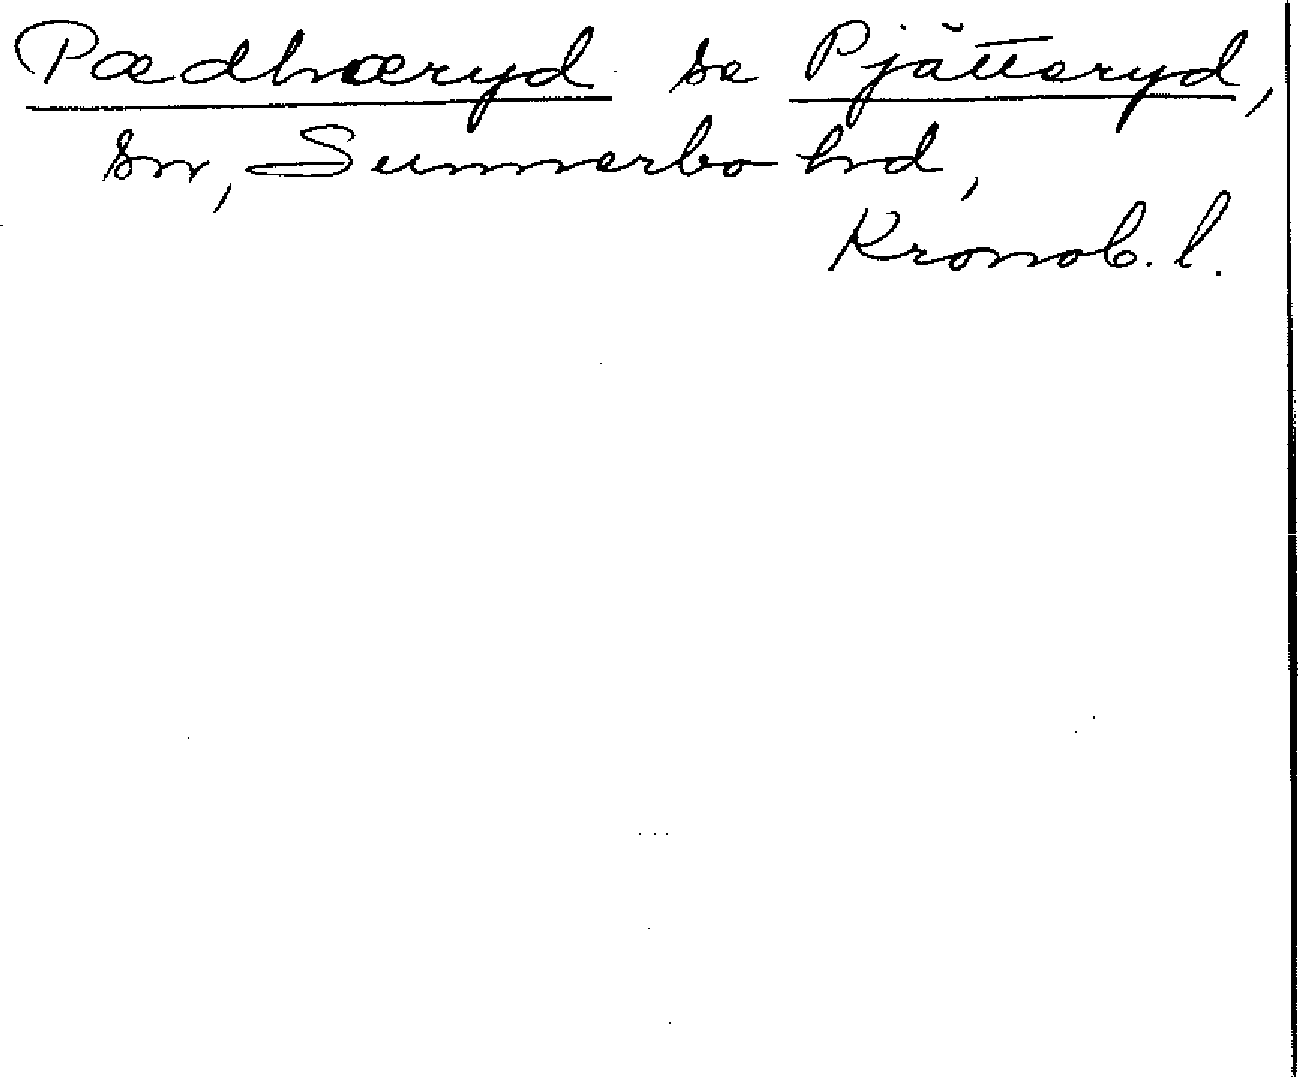 Pædhæryd se Pjätteryd,
sn, Sunnerbo hd,
Kronob. l.